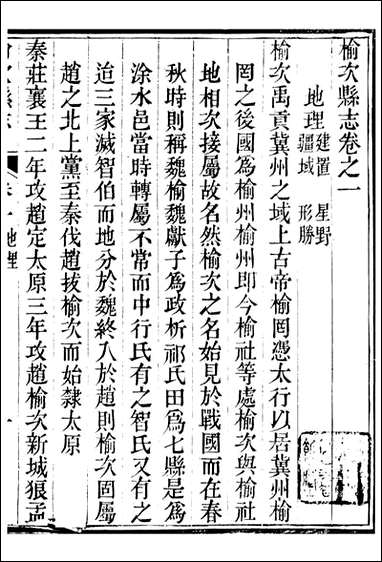 榆次縣志卷之一
地理 建置 星野
疆域 形勝
榆次禹貢冀州之域上古帝榆罔憑太行以居冀州榆
罔之後國爲榆州榆州即今榆社等處榆次與榆社
地相次接屬故名然榆次之名始見於戰國而在春
秋時則稱魏榆魏獻子爲政析祁氏田爲七縣是爲
涂水邑當時轉屬不常而中行氏有之智氏又有之
迨三家滅智伯而地分於魏終入於趙則榆次固屬
趙之北上黨至秦伐趙拔榆次而始隸太原
秦莊襄王二年攻趙定太原三年攻趙榆次新城狼孟
卷一 地理 一